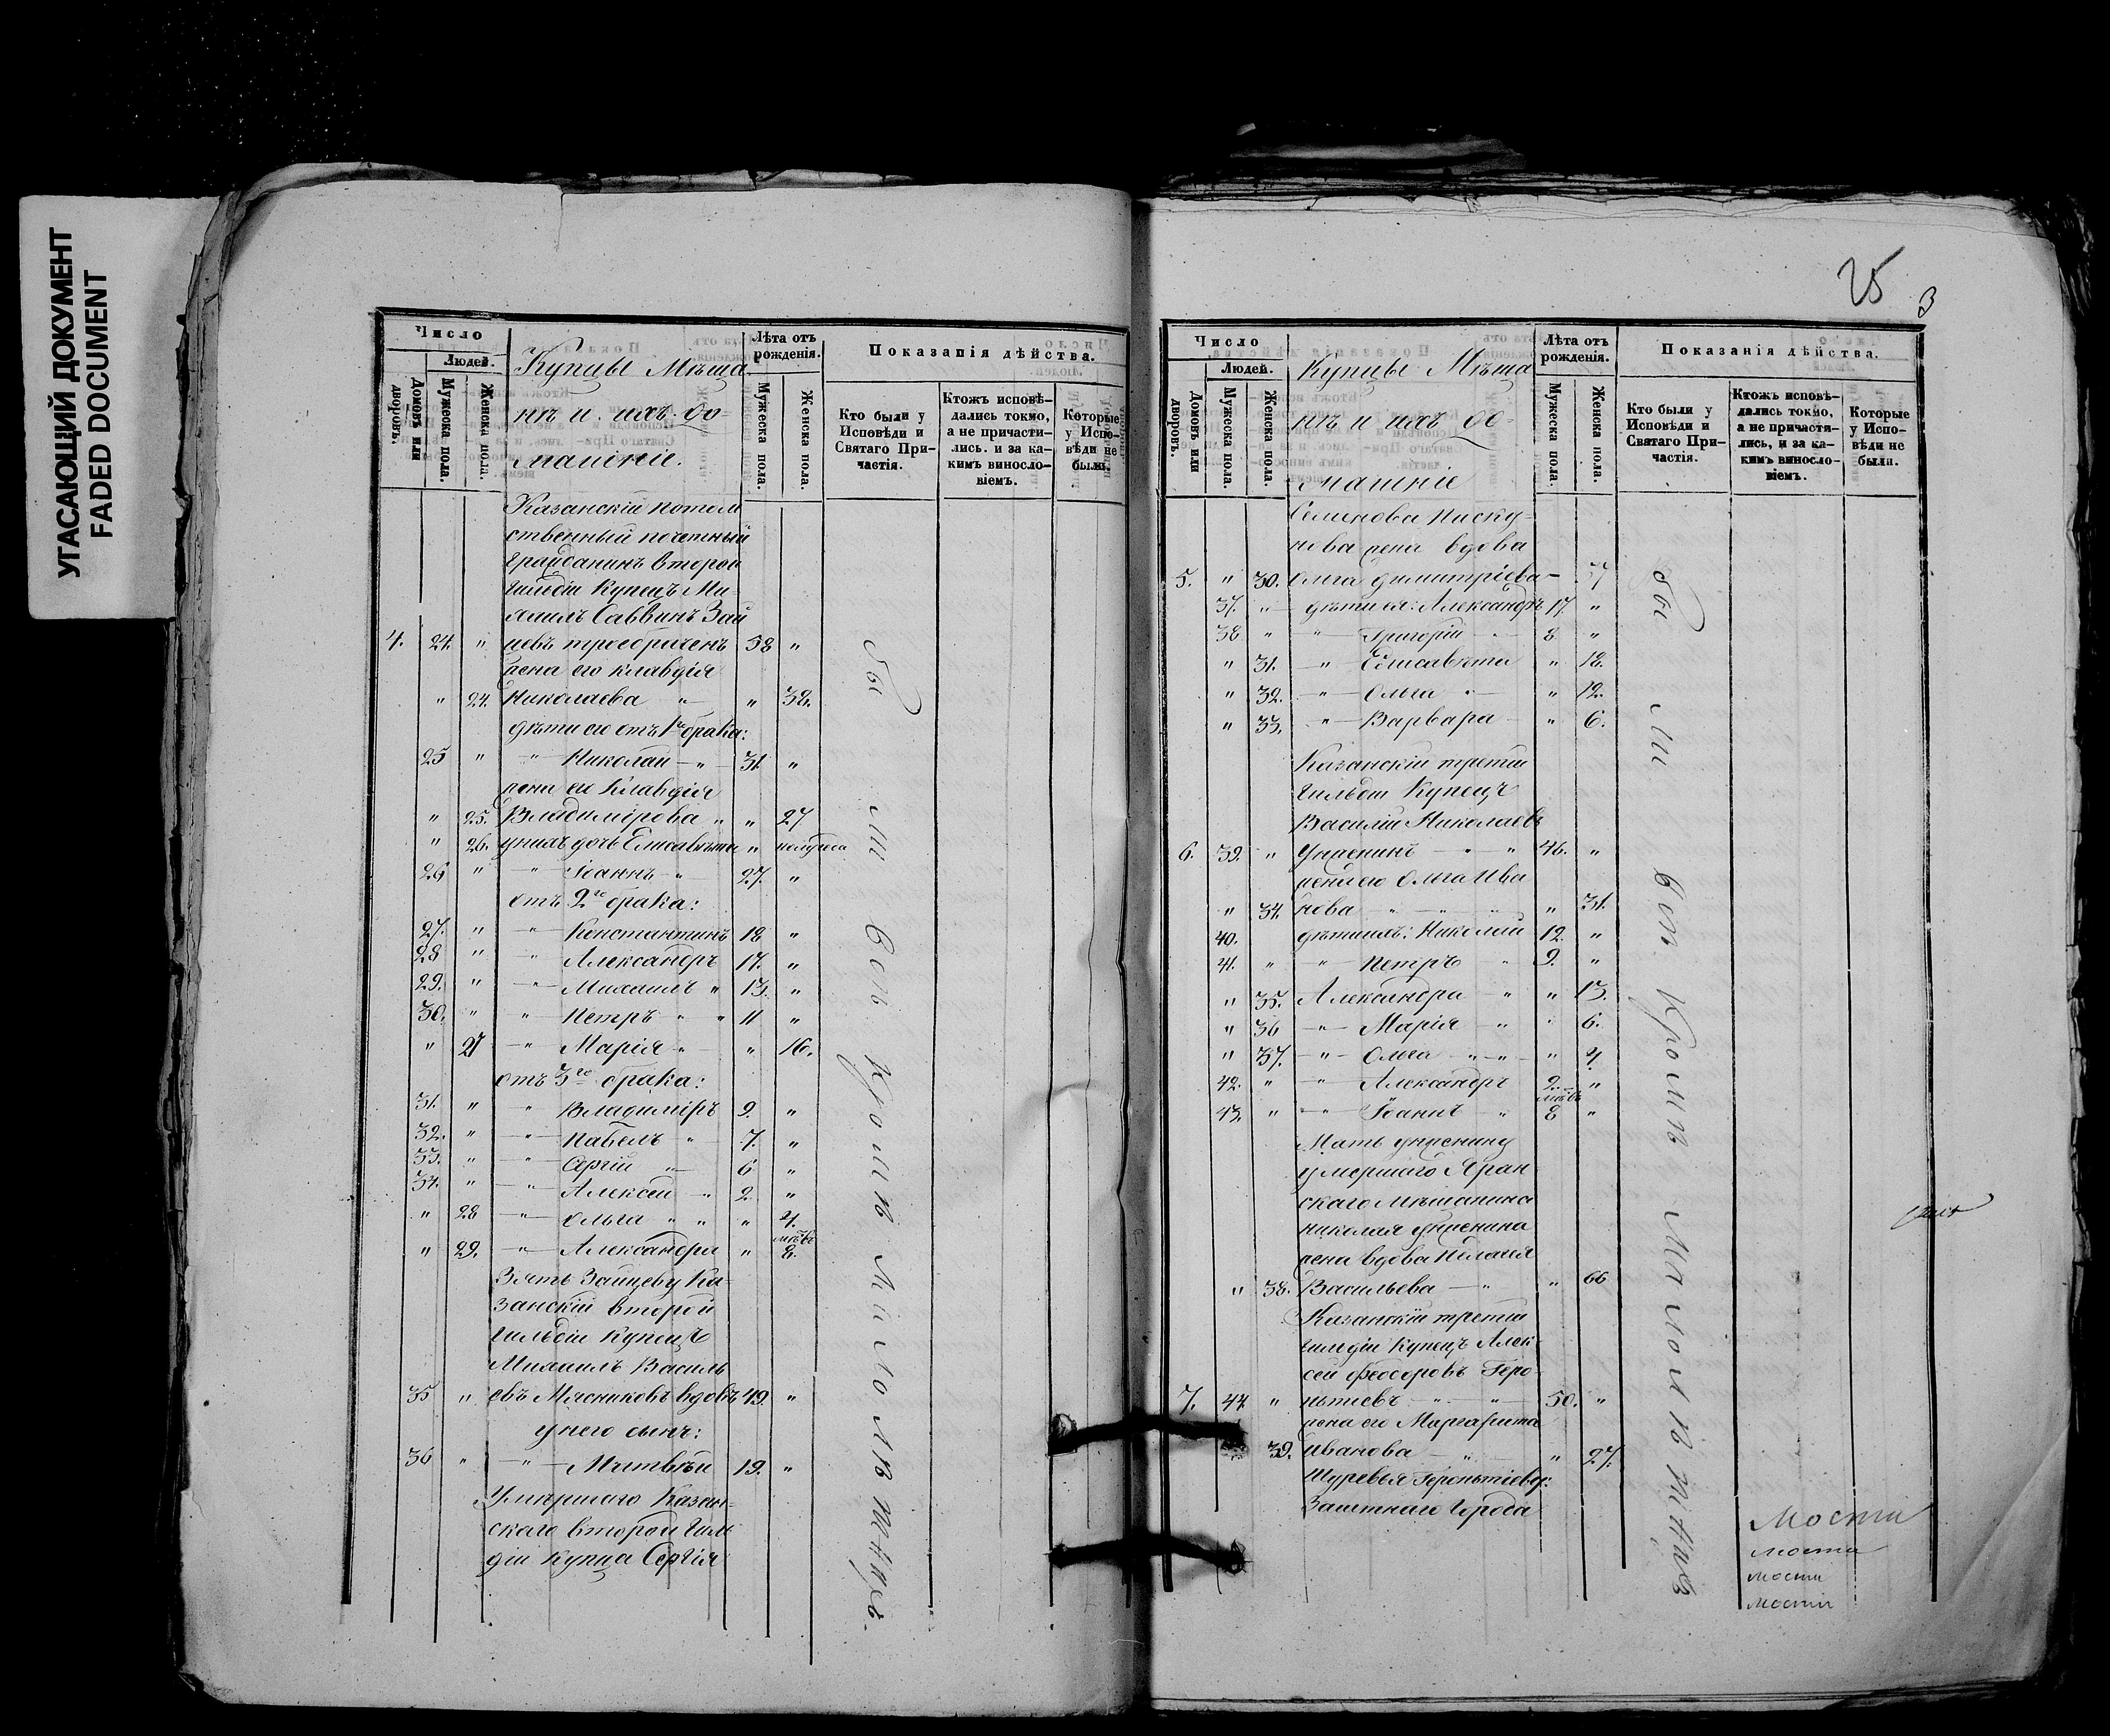 УГАСАЮЩИЙ ДОКУМЕНТ
FADED DOCUMENT
Число
Людей.
Домовъ или дворовъ.
Мужеска пола.
Женска пола.
Купцы Мѣща
нѣ и ихъ до
машніе.
Лѣта отъ рожденія.
Мужеска пола.
Женска пола.
Показанія дѣйства.
Кто были у Исповѣди и Святаго Причастія.
Ктожъ исповѣдались токмо, а не причастились. и за какимъ винословіемъ.
Которые у Исповѣди не были.
Казанскій потом
ственный почетный
гражданинъ второй
гильдіи Купецъ Ми-
хаилъ Саввинъ Зай
4. 24. " цевъ троебраченъ 58 "
жена его Клавдія
" 24. Николаева " " 38.
дѣти его отъ 1го брака:
25 " " Николай " 31. "
жена его Клавдія
" 25. Владимірова " " 27
" 26. у нихъ дочь Елисавета " полугода
26 " " Іоаннъ " 27. "
отъ 2го брака:
27. " " Константинъ 18 "
28 " " Александръ 17. "
29. " " Михаилъ " 13. "
30. " " Петръ " " 11 "
" 27 " Марія " " 16.
отъ 3го брака:
31. " " Владиміръ 9. "
32. " " Павелъ " 7. "
33. " " Сергій " 6 "
34. " " Алексѣй " 2. "
" 28 " Ольга " " " 4.
" 29. " Александра " мѣсяц 8.
Зять Зайцеву Ка-
занскій второй
гильдіи Купецъ
Михаилъ Василь
35 " евъ Мясниковъ вдовъ 49. "
у него сынъ:
36 " " Матвѣй 19. "
Умершаго Казан-
скаго второй гил
діи купца Сергія
бы ли всѣ кромѣ малолѣтнихъ.
25
3
Число
Людей.
Домовъ или дворовъ.
Мужеска пола.
Женска пола.
Купцы Мѣща
нѣ и ихъ до-
машніе
Лѣта отъ рожденія.
Мужеска пола.
Женска пола.
Показанія дѣйства.
Кто были у Исповѣди и Святаго Причастія.
Ктожъ исповѣдались токмо, а не причастились, и за какимъ винословіемъ.
Которые у Исповѣди не были.
Семенова Писку-
нова жена вдова
5. " 30. Ольга Димитріева 37
37. " дѣти ея: Александръ 17. "
38 " " Григорій " 8 "
" 31. " Елисавета " 18.
" 32. " Ольга " " 12.
" 33. " Варвара " 6.
Казанскій третій
гильдіи Купецъ
Василій Николаевъ
6. 39. " Унженинъ " " 46. "
жена его Ольга Ива
" 34. нова " " " " 31.
40. дѣти ихъ: Николай 12. "
41. " " Петръ " 9. "
" 35. Александра " " 13.
" 36 " Марія " " 6.
" 37. " Ольга " " " 4.
42. " " Александръ 2. "
43. " " Іоаннъ " 8 "
Мать Унженину
умершаго Яран
скаго мѣщанина
Николая Унженина
жена вдова Пелагея
" 38. Васильева " " 66
Казанскій третій
гильдіи Купецъ Алек
сѣй Феодоровъ Геро-
7. 44 " нтьевъ " " 50. "
жена его Маргарита
39. Иванова " " 27.
Шурья Геронтіеву:
Заштнаго города
бы ли всѣ кромѣ малолѣтнихъ
Мости
мости
мости
мости